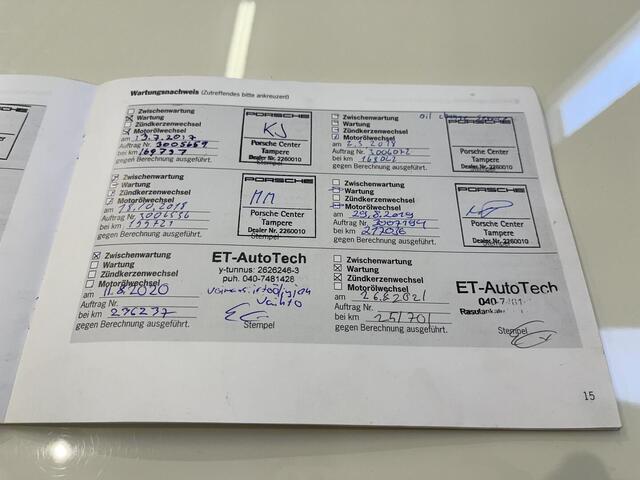 Wartungsnachweis (Zutreffendes bitte ankreuzen!)
Zwischenwartung
Wartung
Zündkerzenwechsel
Motorölwechsel
am 13.7.2017
Auftrag Nr. 3005659
bei km 148737
gegen Berechnung ausgeführt.
PORSCHE
KJ
Porsche Center
Tampere
Dealer Nr. 2260010
Stempel
Zwischenwartung
Wartung
Zündkerzenwechsel
Motorölwechsel
am 2.3.2018
Auftrag Nr. 3006072
bei km 168042
gegen Berechnung ausgeführt.
oil change
PORSCHE
Porsche Center
Tampere
Dealer Nr. 2260010
Stempel
Zwischenwartung
Wartung
Zündkerzenwechsel
Motorölwechsel
am 18.10.2018
Auftrag Nr. 3006556
bei km 199721
gegen Berechnung ausgeführt.
PORSCHE
MM
Porsche Center
Tampere
Dealer Nr. 2260010
Zwischenwartung
Wartung
Zündkerzenwechsel
Motorölwechsel
am 29.8.2019
Auftrag Nr. 3007194
bei km 217026
gegen Berechnung ausgeführt.
PORSCHE
Porsche Center
Tampere
Dealer Nr. 2260010
Stempel
Zwischenwartung
Wartung
Zündkerzenwechsel
Motorölwechsel
am 11.8.2020
Auftrag Nr.
bei km 236237
gegen Berechnung ausgeführt.
ET-AutoTech
y-tunnus: 2626246-3
puh. 040-7481428
vaihto
Stempel
Zwischenwartung
Wartung
Zündkerzenwechsel
Motorölwechsel
am 26.8.2021
Auftrag Nr.
bei km 251701
gegen Berechnung ausgeführt.
ET-AutoTech
040-7481
Stempel
15